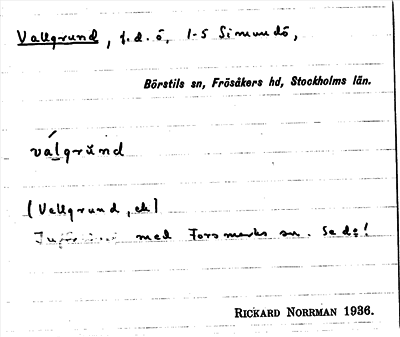 Vallgrund, f.d. ö, 1-5 Simundö,
Börstils sn, Frösåkers hd, Stockholms län.
válgrŭnd
(Vallgrund, ek)
med Forsmarks sn. Se d:o!
RICKARD NORRMAN 1936.